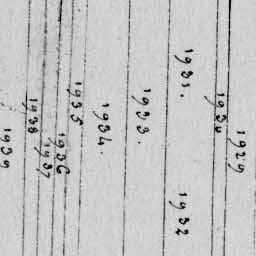 1929
1930
1931.
1932
1933.
1934.
1935
1936
1937
1938
1939